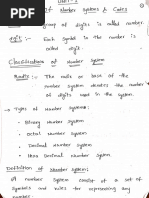 Unit-1
Number Systems & Codes
group of digits is called number.
digit :- Each Symbol in the Number is
called digit.
Classification of Number System
Radix :- The radix or base of the
number system denotes the number
of digits used in the system.
→ Types of Number systems:
- Binary Number System
- Octal number System
- Decimal number System
- Hexa Decimal Number System.
Definition of Number System:
A number System consist of a set of
Symbols and rules for representing any
number.